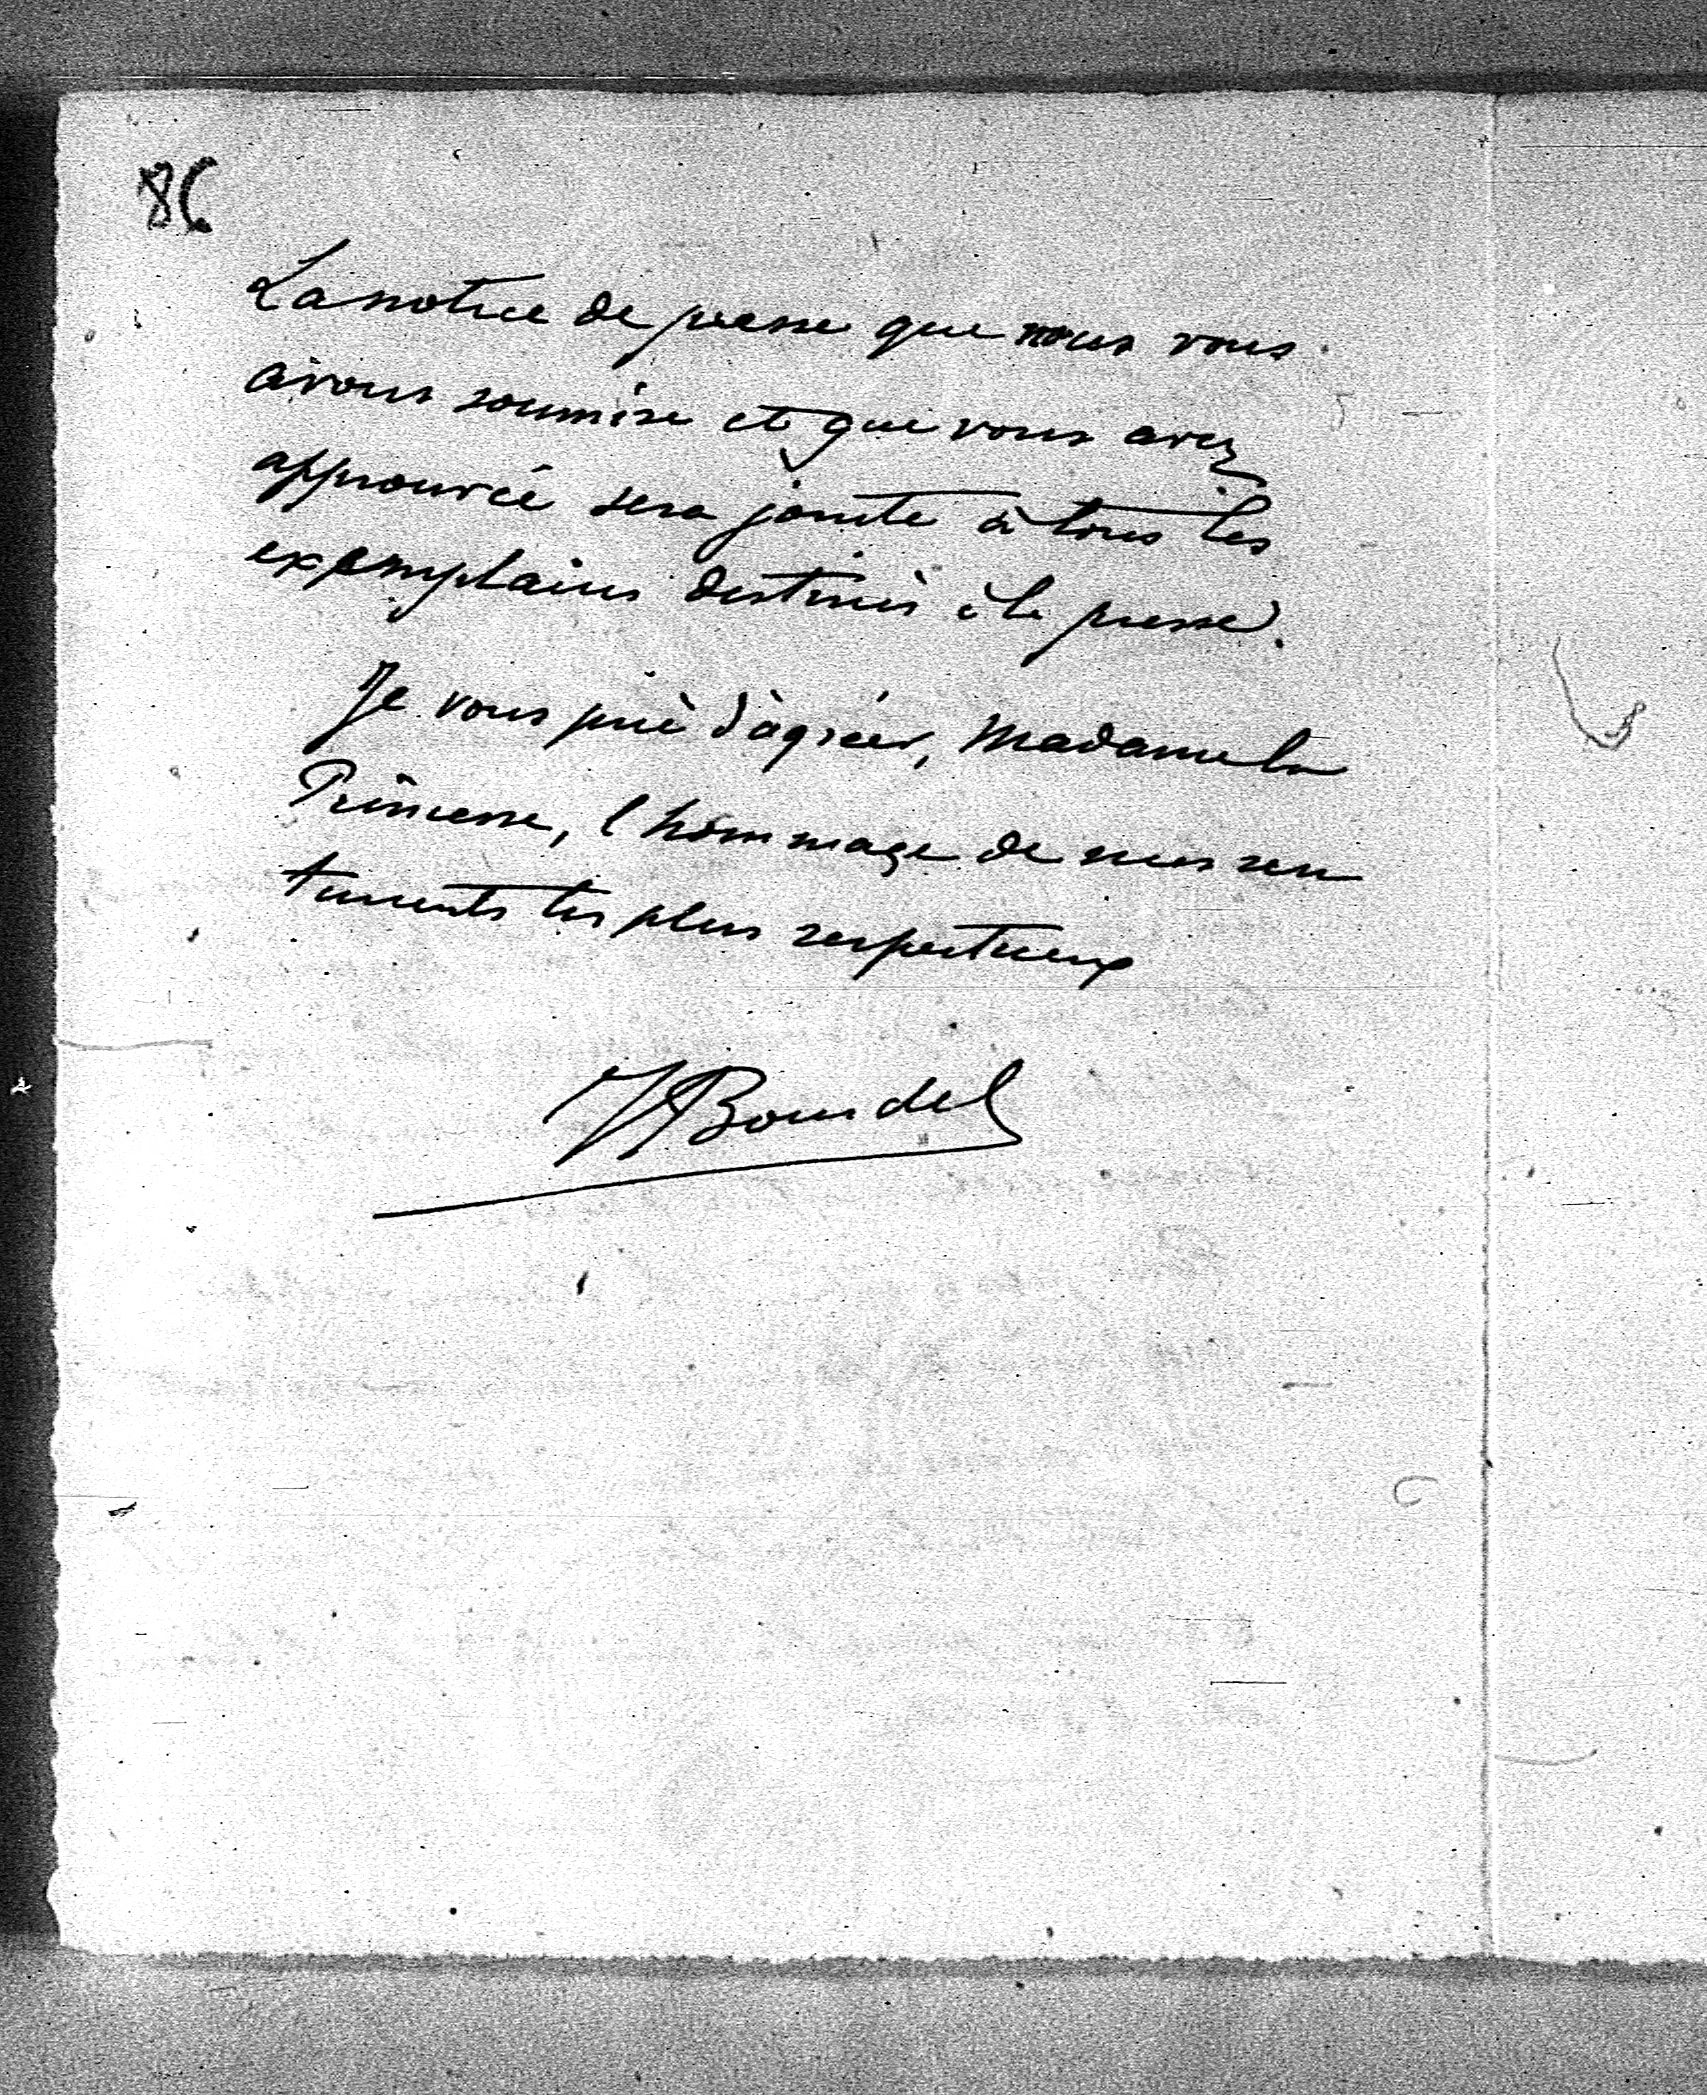 86
La notice de presse que nous vous
avons soumise et que vous avez
approuvée sera jointe à tous les
exemplaires destinés à la presse.
Je vous prie d'agréer, Madame la
Princesse, l'hommage de mes sen
timents les plus respectueux
Bourdel